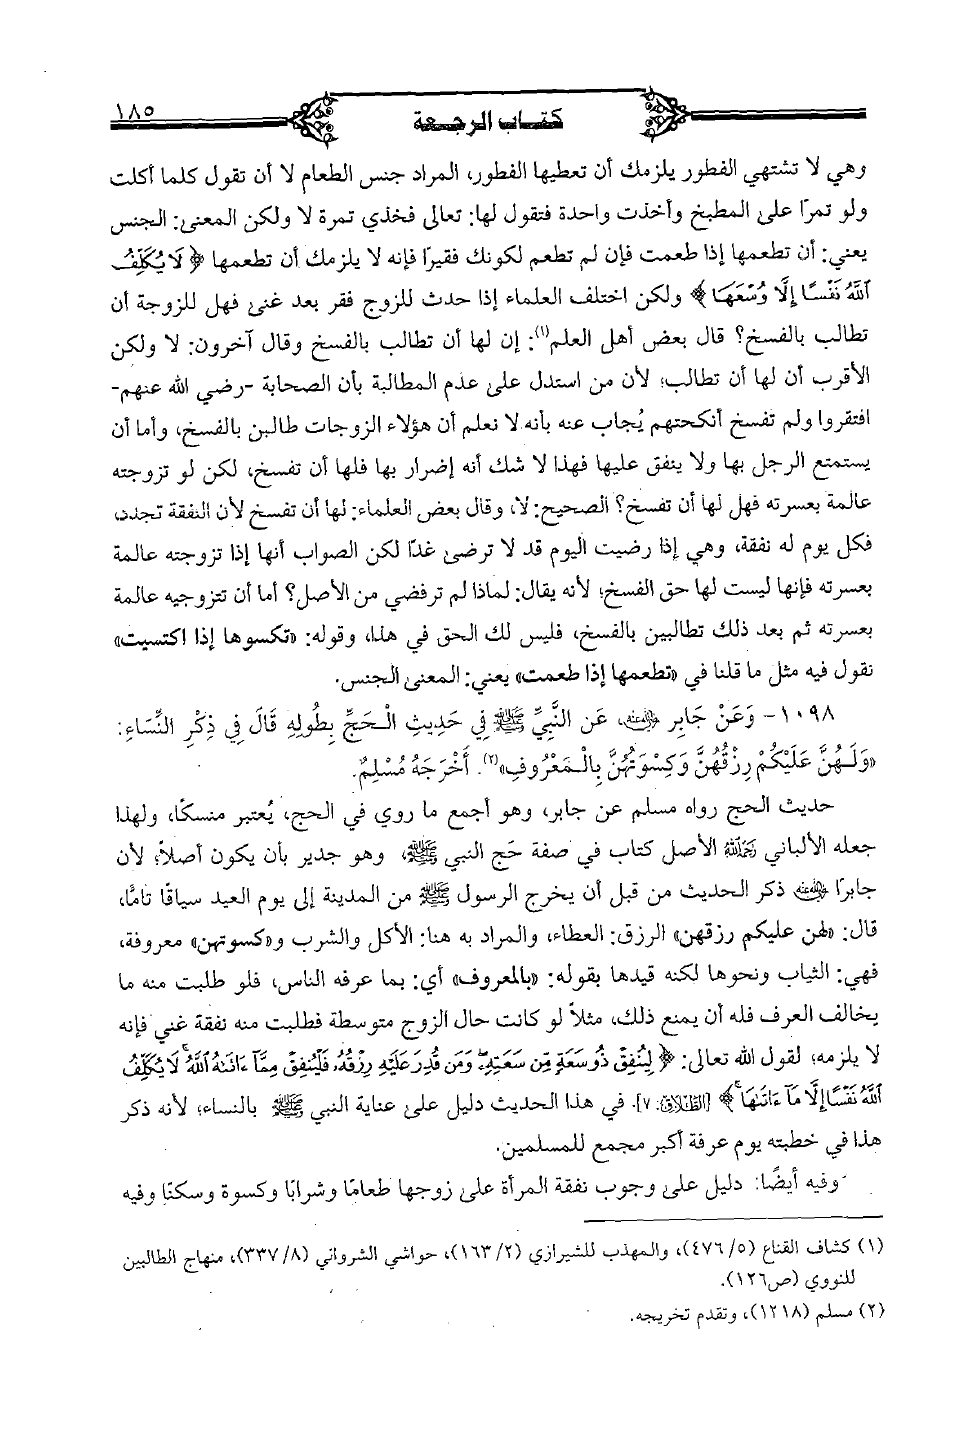 كتاب الرجعة
١٨٥
وهي لا تشتهي الفطور يلزمك أن تعطيها الفطور، المراد جنس الطعام لا أن تقول كلما أكلت
ولو تمرًا على المطبخ وأخذت واحدة فتقول لها: تعالى فخذي تمرة لا ولكن المعنى: الجنس
يعني: أن تطعمها إذا طعمت فإن لم تطعم لكونك فقيرًا فإنه لا يلزمك أن تطعمها ﴿ لَا يُكَلِّفُ
ٱللَّهُ نَفْسًا إِلَّا وُسْعَهَا ﴾ ولكن اختلف العلماء إذا حدث للزوج فقر بعد غنى فهل للزوجة أن
تطالب بالفسخ؟ قال بعض أهل العلم(١): إن لها أن تطالب بالفسخ وقال آخرون: لا ولكن
الأقرب أن لها أن تطالب؛ لأن من استدل على عدم المطالبة بأن الصحابة -رضي الله عنهم-
افتقروا ولم تفسخ أنكحتهم يُجاب عنه بأنه لا نعلم أن هؤلاء الزوجات طالبن بالفسخ، وأما أن
يستمتع الرجل بها ولا ينفق عليها فهذا لا شك أنه إضرار بها فلها أن تفسخ، لكن لو تزوجته
عالمة بعسرته فهل لها أن تفسخ؟ الصحيح: لا، وقال بعض العلماء: لها أن تفسخ لأن النفقة تجدد،
فكل يوم له نفقة، وهي إذا رضيت اليوم قد لا ترضى غدًا لكن الصواب أنها إذا تزوجته عالمة
بعسرته فإنها ليست لها حق الفسخ؛ لأنه يقال: لماذا لم ترفضي من الأصل؟ أما أن تتزوجيه عالمة
بعسرته ثم بعد ذلك تطالبين بالفسخ، فليس لك الحق في هذا، وقوله: «تكسوها إذا اكتسيت»
نقول فيه مثل ما قلنا في «تطعمها إذا طعمت» يعني: المعنى الجنس.
١٠٩٨- وَعَنْ جَابِرٍ رضي الله عنه، عَنِ النَّبِيِّ ﷺ فِي حَدِيثِ الْحَجِّ بِطُولِهِ قَالَ فِي ذِكْرِ النِّسَاءِ:
«وَلَهُنَّ عَلَيْكُمْ رِزْقُهُنَّ وَكِسْوَتُهُنَّ بِالْمَعْرُوفِ»(٢). أَخْرَجَهُ مُسْلِمٌ.
حديث الحج رواه مسلم عن جابر، وهو أجمع ما روي في الحج، يُعتبر منسكًا، ولهذا
جعله الألباني رحمه الله الأصل كتاب في صفة حَج النبي ﷺ، وهو جدير بأن يكون أصلاً؛ لأن
جابرًا رضي الله عنه ذكر الحديث من قبل أن يخرج الرسول ﷺ من المدينة إلى يوم العيد سياقًا تامًّا،
قال: «لهن عليكم رزقهن» الرزق: العطاء، والمراد به هنا: الأكل والشرب و«كسوتهن» معروفة،
فهي: الثياب ونحوها لكنه قيدها بقوله: «بالمعروف» أي: بما عرفه الناس، فلو طلبت منه ما
يخالف العرف فله أن يمنع ذلك، مثلاً لو كانت حال الزوج متوسطة فطلبت منه نفقة غني فإنه
لا يلزمه؛ لقول الله تعالى: ﴿ لِيُنفِقْ ذُو سَعَةٍ مِّن سَعَتِهِۦ وَمَن قُدِرَ عَلَيْهِ رِزْقُهُۥ فَلْيُنفِقْ مِمَّآ ءَاتَىٰهُ ٱللَّهُ ۚ لَا يُكَلِّفُ
ٱللَّهُ نَفْسًا إِلَّا مَآ ءَاتَىٰهَا ۚ ﴾ [الطَّلَاق: ٧]. في هذا الحديث دليل على عناية النبي ﷺ بالنساء؛ لأنه ذكر
هذا في خطبته يوم عرفة أكبر مجمع للمسلمين.
وفيه أيضًا: دليل على وجوب نفقة المرأة على زوجها طعامًا وشرابًا وكسوة وسكنًا وفيه
(١) كشاف القناع (٥/ ٤٧٦)، والمهذب للشيرازي (٢/ ١٦٣)، حواشي الشرواني (٨/ ٣٣٧)، منهاج الطالبين
للنووي (ص١٢٦).
(٢) مسلم (١٢١٨)، وتقدم تخريجه.